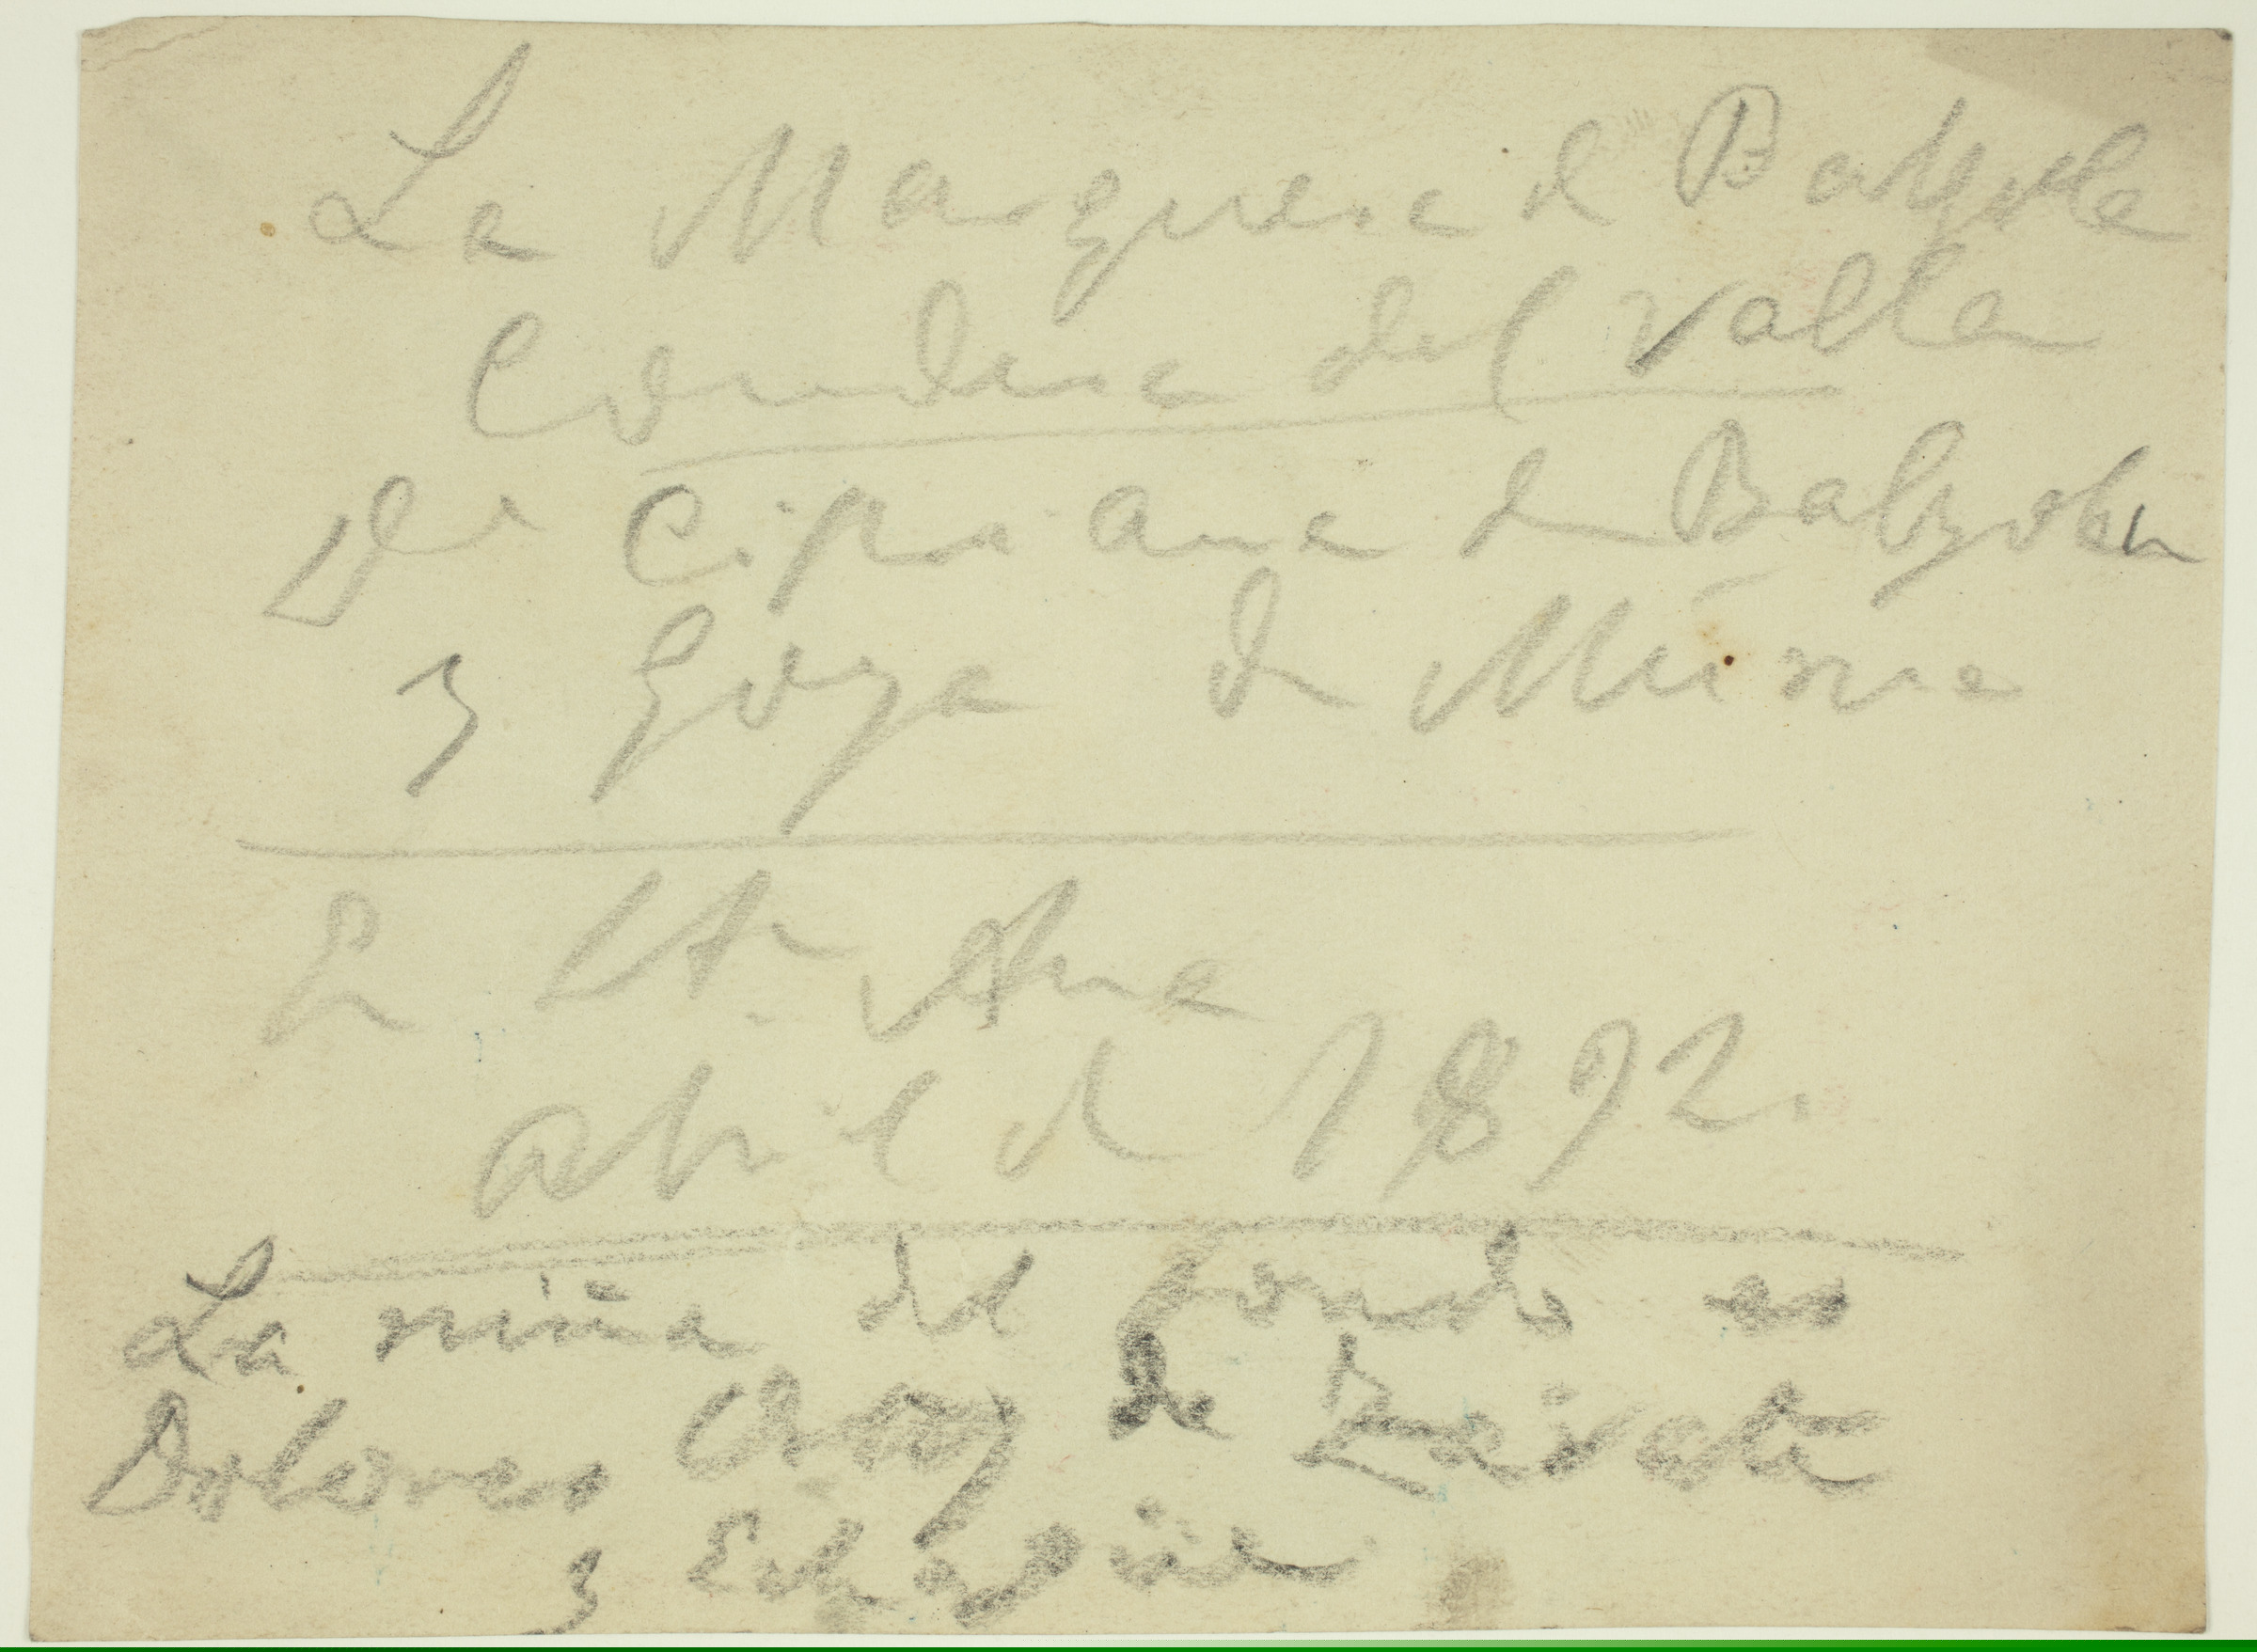 La Marquesa de Balzola
Condesa del Valle
Dª Cipriana de Balzola
y Goya de Murua
En Sta Ana
abril de 1892.
La niña del fondo es
Dolores de Zarate
y Echagüe